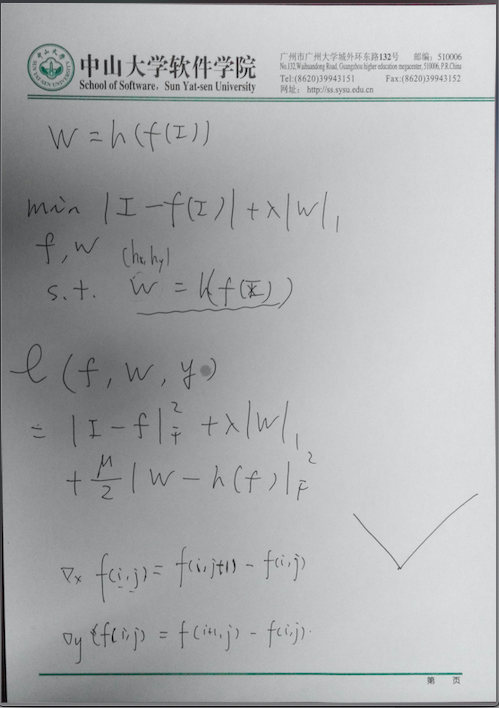 中山大学软件学院
School of Software, Sun Yat-sen University
广州市广州大学城外环东路132号 邮编: 510006
No.132,Waihuandong Road, Guangzhou higher education megacenter, 510006, P.R.China
Tel:(8620)39943151 Fax:(8620)39943152
网址: http://ss.sysu.edu.cn
W = h(f(I))
min |I - f(I)| + λ|W|₁
f, w (hx, hy)
s.t. W = h(f(I))
ℓ(f, W, y)
= |I - f|²_F + λ|W|₁
+ μ/2 |W - h(f)|²_F
∇x f(i,j) = f(i,j+1) - f(i,j)
∇y f(i,j) = f(i+1,j) - f(i,j).
第 页